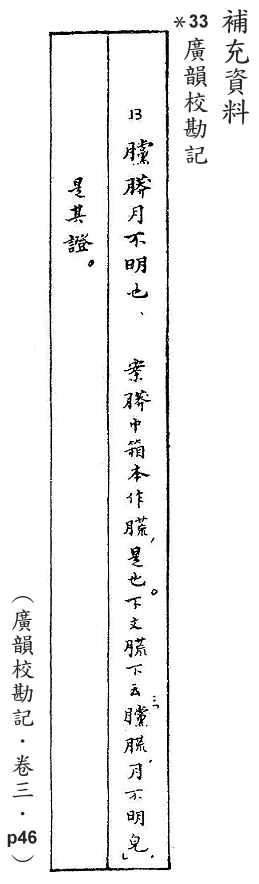 補充資料
*33 廣韻校勘記
13 月不明也、 案巾箱本作㬻,是也。下文㬻下云「㬻,月不明皃」,
是其證。
(廣韻校勘記.卷三.p46)